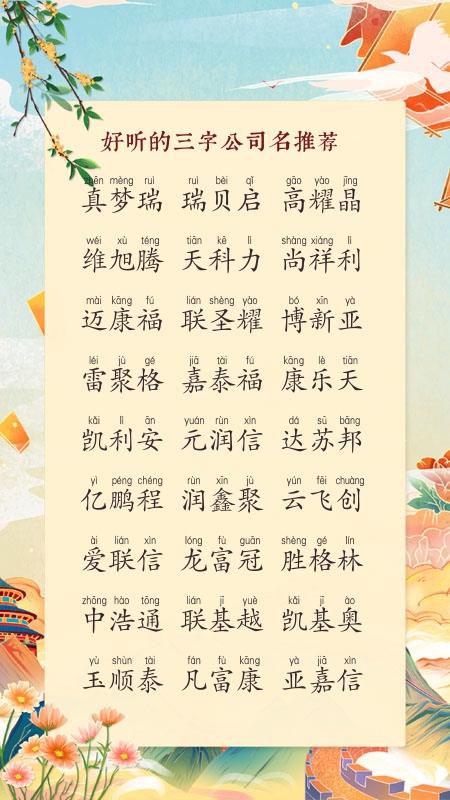 好听的三字公司名推荐
zhēn mèng ruì ruì bèi qǐ gāo yào jīng
真梦瑞 瑞贝启 高耀晶
wéi xù téng tiān kē lì shàng xiáng lì
维旭腾 天科力 尚祥利
mài kāng fú lián shèng yào bó xīn yà
迈康福 联圣耀 博新亚
léi jù gé jiā tài fú kāng lè tiān
雷聚格 嘉泰福 康乐天
kǎi lì ān yuán rùn xìn dá sū bāng
凯利安 元润信 达苏邦
yì péng chéng rùn xīn jù yún fēi chuàng
亿鹏程 润鑫聚 云飞创
ài lián xìn lóng fù guān shèng gé lín
爱联信 龙富冠 胜格林
zhōng hào tōng lián jī yuè kǎi jī ào
中浩通 联基越 凯基奥
yù shùn tài fán fù kāng yà jiā xìn
玉顺泰 凡富康 亚嘉信